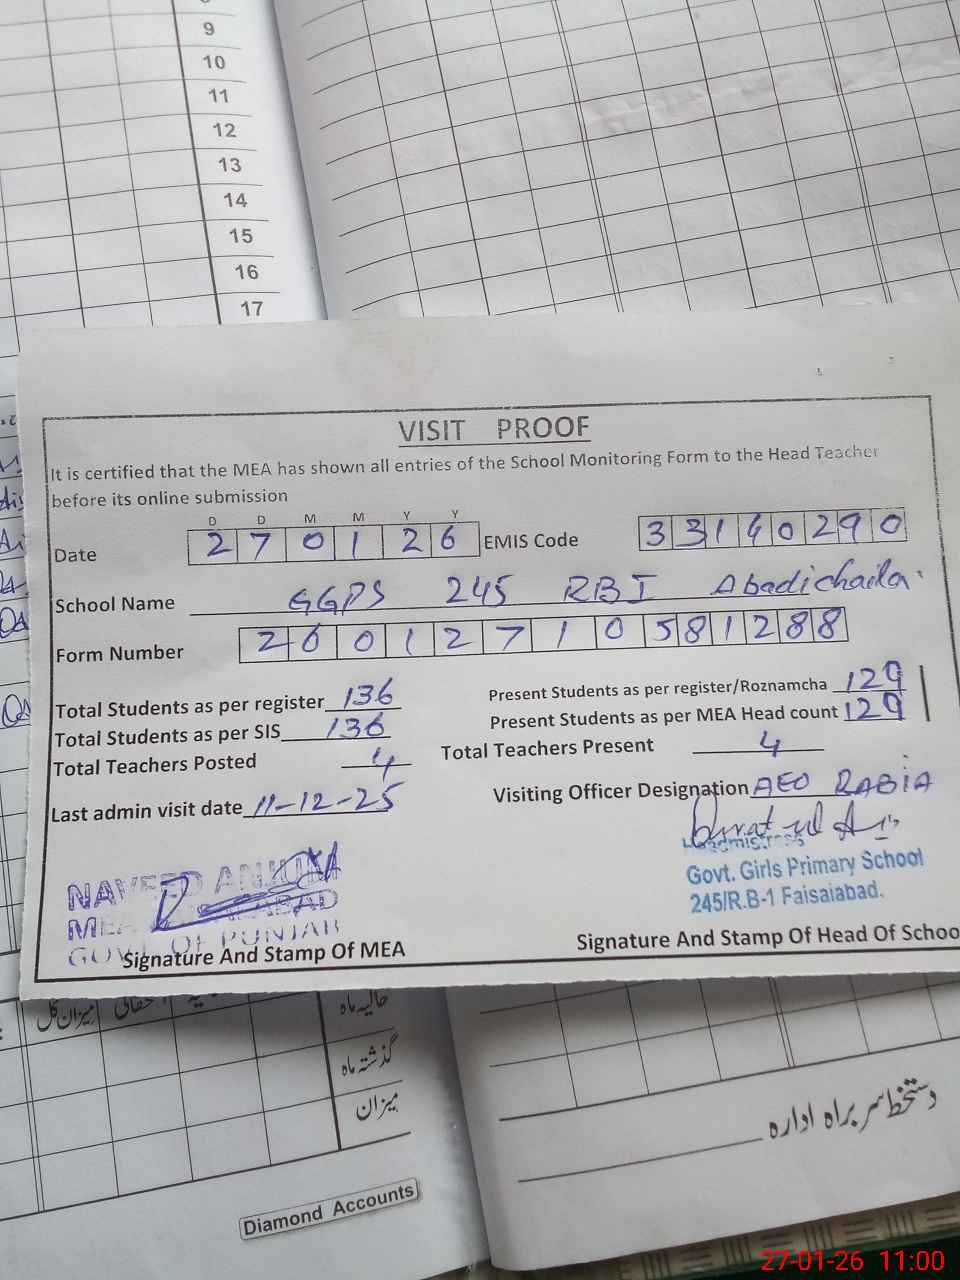 9
10
11
12
13
14
15
16
17
VISIT PROOF
It is certified that the MEA has shown all entries of the School Monitoring Form to the Head Teacher
before its online submission
D D M M Y Y
Date 2 7 0 1 2 6 EMIS Code 3 3 1 4 0 2 9 0
School Name GGPS 245 RB I Abadichaila
Form Number 2 6 0 1 2 7 1 0 5 8 1 2 8 8
Total Students as per register 136 Present Students as per register/Roznamcha 129
Total Students as per SIS 136 Present Students as per MEA Head count 129
Total Teachers Posted 4 Total Teachers Present 4
Last admin visit date 11-12-25 Visiting Officer Designation AEO RABIA
Headmistress
Govt. Girls Primary School
245/R.B-1 Faisalabad.
NAVEED
MEA
GOVT OF PUNJAB
Signature And Stamp Of MEA Signature And Stamp Of Head Of Schoo
میزان کل
حالیہ ماہ
گذشتہ ماہ
میزان
دستخط سربراہ ادارہ
Diamond Accounts
27-01-26 11:00